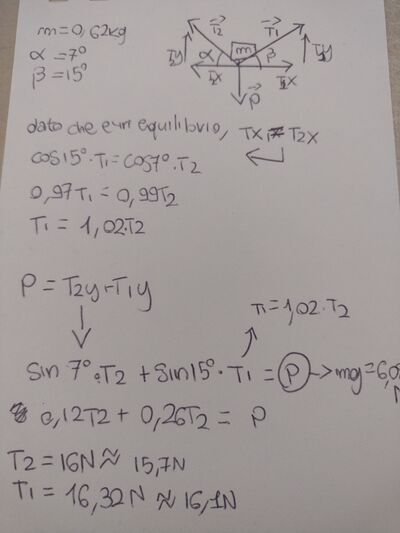 m=0,62kg
α=7°
β=15°
T2 T1
T2y α m β T1y
T2x T1x
P
dato che è un equilibrio, Tx1 = T2x
cos15°·T1=cos7°·T2
0,97T1=0,99T2
T1=1,02·T2
P=T2y+T1y
T1=1,02·T2
sin7°·T2+sin15°·T1=P→mg=6,0
N
0,12T2+0,26T2=P
T2=16N≈15,7N
T1=16,32N≈16,1N